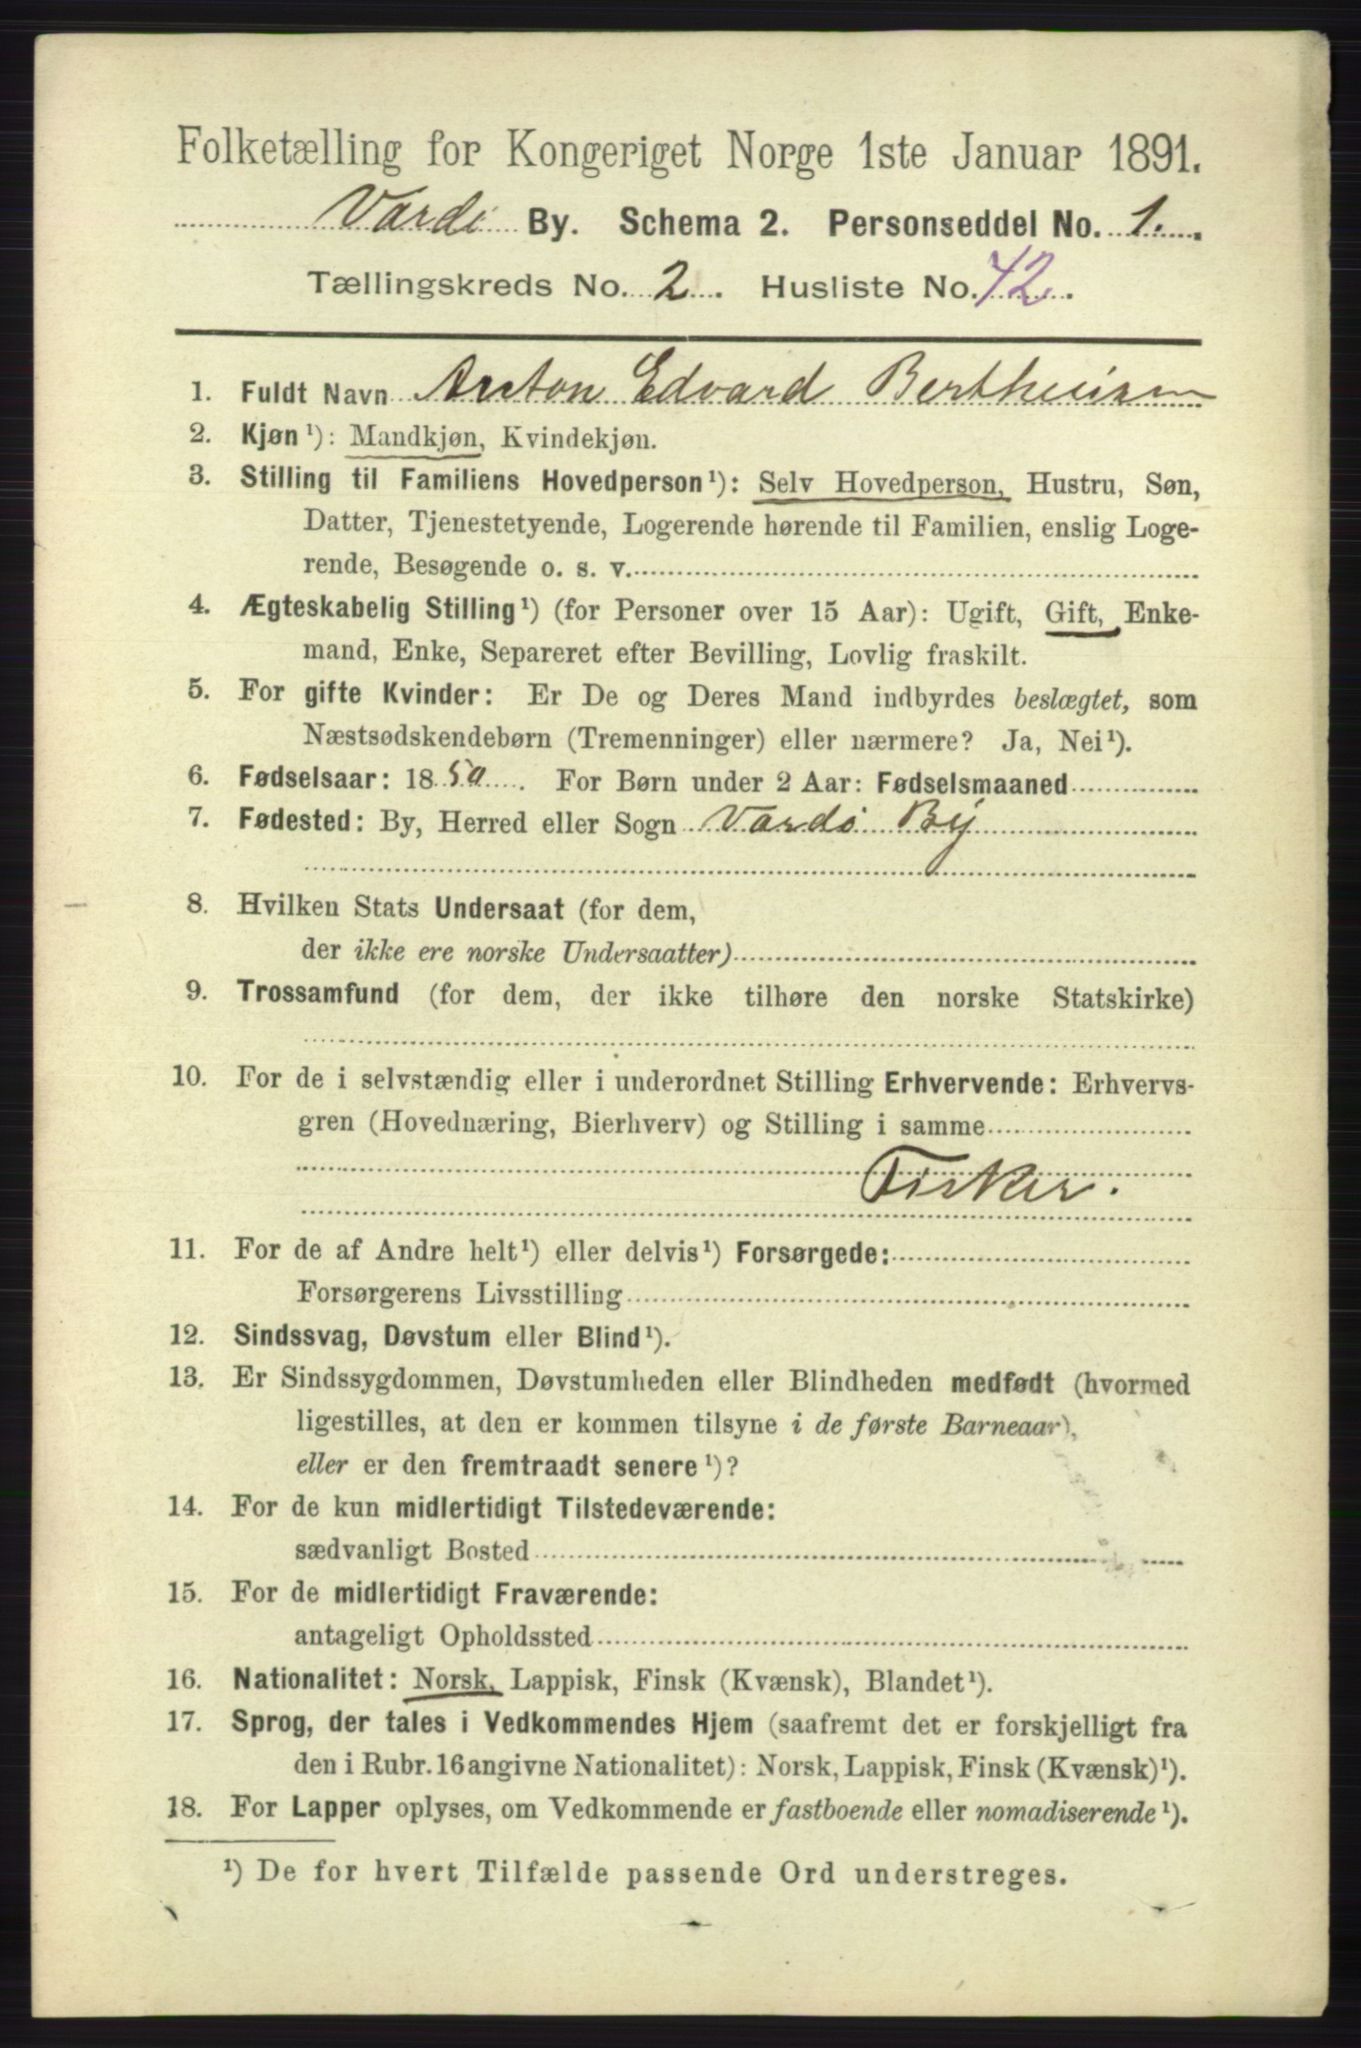 Folketælling for Kongeriget Norge 1ste Januar 1891.
Vardö By. Schema 2. Personseddel No. 1.
Tællingskreds No. 2. Husliste No. 42.
1. Fuldt Navn Anton Edvard Bertheusen
2. Kjøn¹): Mandkjøn, Kvindekjøn.
3. Stilling til Familiens Hovedperson¹): Selv Hovedperson, Hustru, Søn,
Datter, Tjenestetyende, Logerende hørende til Familien, enslig Loge-
rende, Besøgende o. s. v.
4. Ægteskabelig Stilling¹) (for Personer over 15 Aar): Ugift, Gift, Enke-
mand, Enke, Separeret efter Bevilling, Lovlig fraskilt.
5. For gifte Kvinder: Er De og Deres Mand indbyrdes beslægtet, som
Næstsødskendebørn (Tremenninger) eller nærmere? Ja, Nei¹).
6. Fødselsaar: 1850. For Børn under 2 Aar: Fødselsmaaned
7. Fødested: By, Herred eller Sogn Vardö By
8. Hvilken Stats Undersaat (for dem,
der ikke ere norske Undersaatter)
9. Trossamfund (for dem, der ikke tilhøre den norske Statskirke)
10. For de i selvstændig eller i underordnet Stilling Erhvervende: Erhvervs-
gren (Hovednæring, Bierhverv) og Stilling i samme
Fisker.
11. For de af Andre helt¹) eller delvis¹) Forsørgede:
Forsørgerens Livsstilling
12. Sindssvag, Døvstum eller Blind¹).
13. Er Sindssygdommen, Døvstumheden eller Blindheden medfødt (hvormed
ligestilles, at den er kommen tilsyne i de første Barneaar),
eller er den fremtraadt senere¹)?
14. For de kun midlertidigt Tilstedeværende:
sædvanligt Bosted
15. For de midlertidigt Fraværende:
antageligt Opholdssted
16. Nationalitet: Norsk, Lappisk, Finsk (Kvænsk), Blandet¹).
17. Sprog, der tales i Vedkommendes Hjem (saafremt det er forskjelligt fra
den i Rubr. 16 angivne Nationalitet): Norsk, Lappisk, Finsk (Kvænsk)¹).
18. For Lapper oplyses, om Vedkommende er fastboende eller nomadiserende¹).
¹) De for hvert Tilfælde passende Ord understreges.